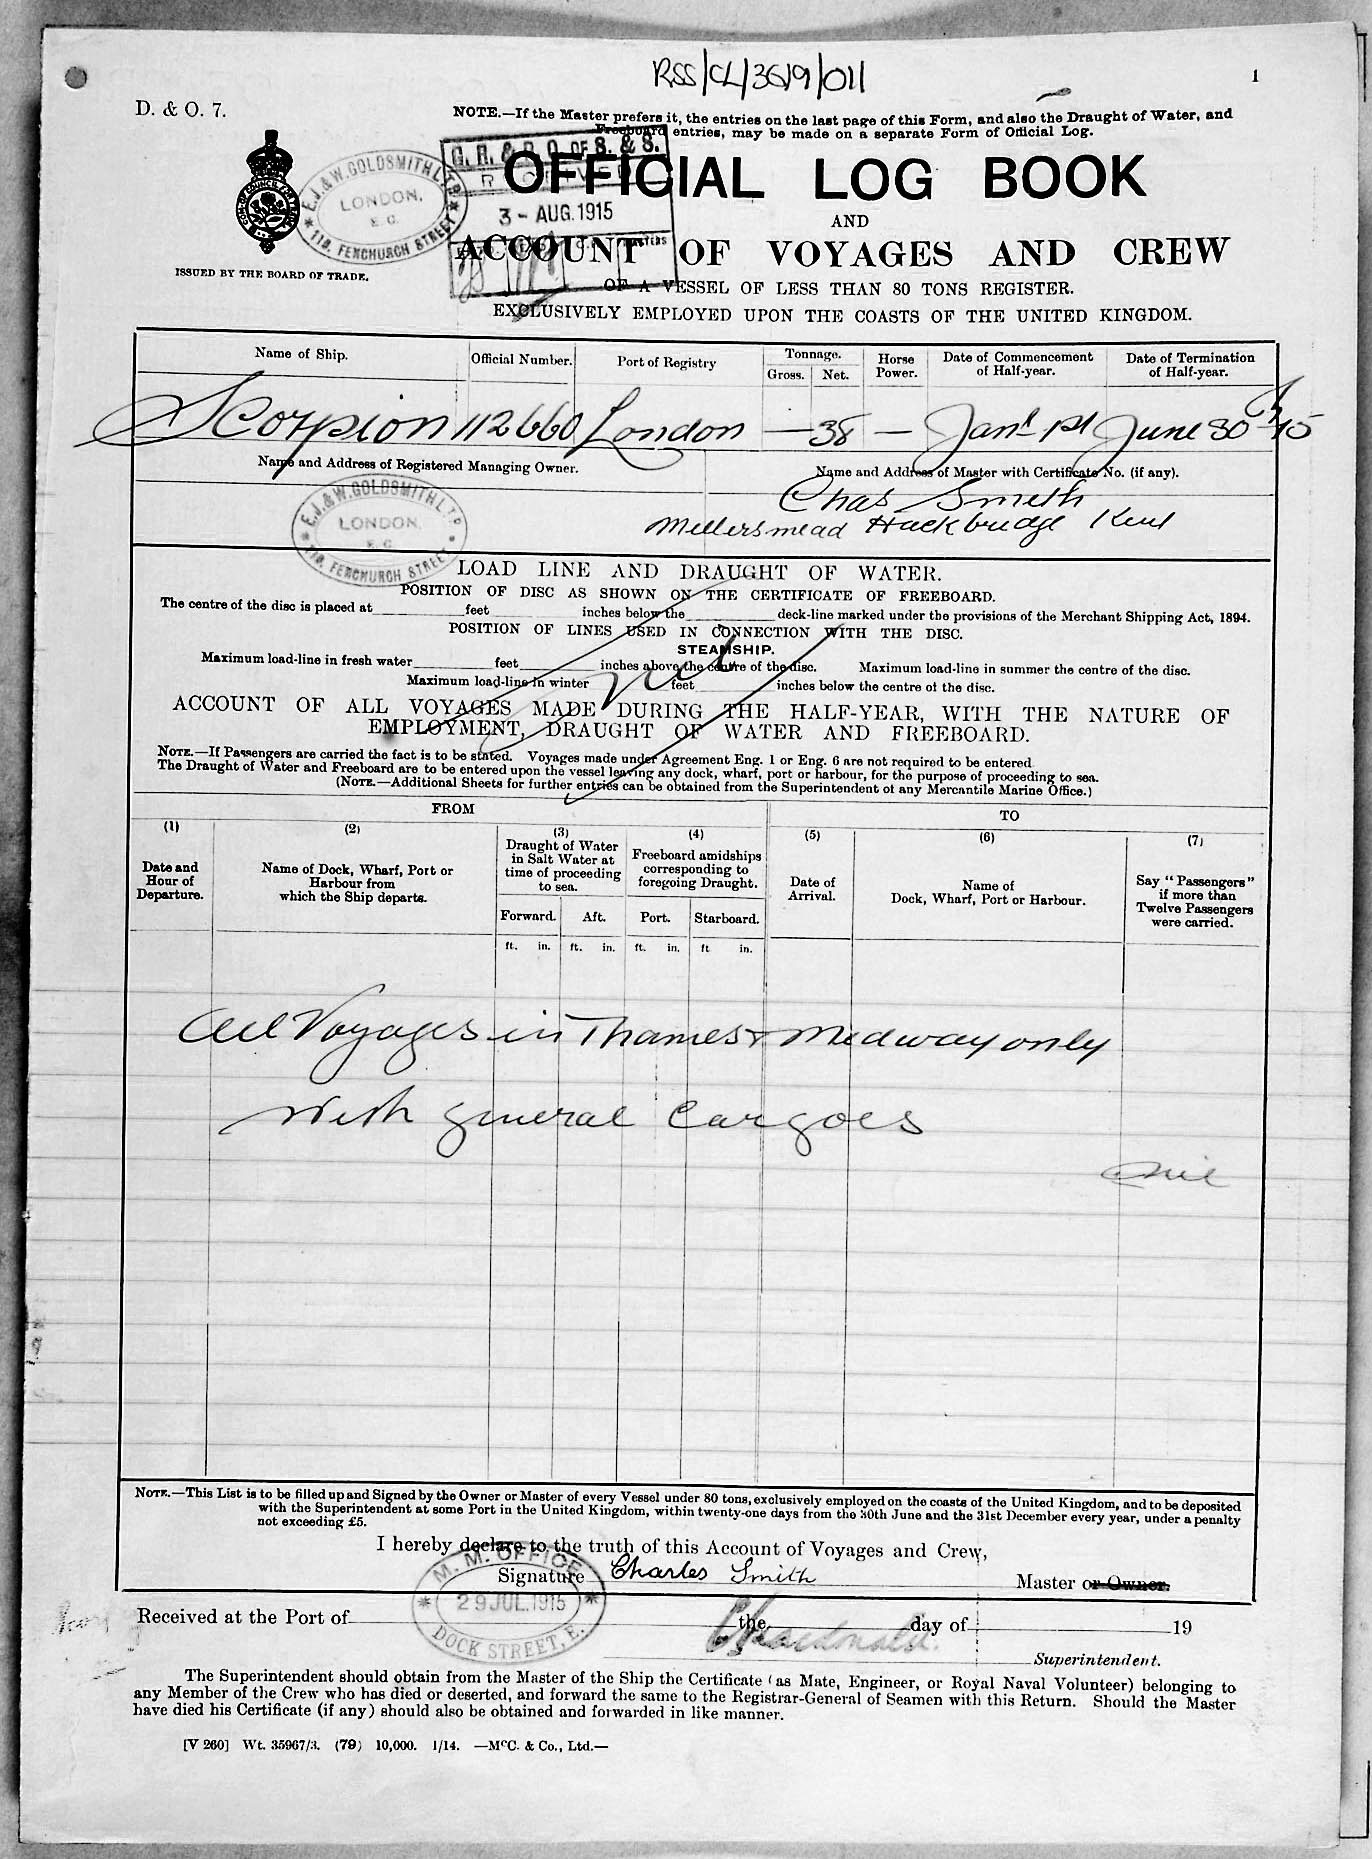 RSS/CL/3619/011
1
D. & O. 7.
NOTE.—If the Master prefers it, the entries on the last page of this Form, and also the Draught of Water, and
Freeboard entries, may be made on a separate Form of Official Log.
E.J. & W. GOLDSMITH LTD
LONDON.
E.C.
110, FENCHURCH STREET
G. R. & R. O. OF S. & S.
RECEIVED
3 - AUG. 1915
OFFICIAL LOG BOOK
AND
ACCOUNT OF VOYAGES AND CREW
ISSUED BY THE BOARD OF TRADE.
OF A VESSEL OF LESS THAN 80 TONS REGISTER.
EXCLUSIVELY EMPLOYED UPON THE COASTS OF THE UNITED KINGDOM.
Name of Ship. Official Number. Port of Registry Tonnage. Gross. Net. Horse Power. Date of Commencement of Half-year. Date of Termination of Half-year.
Scorpion 112660 London — 38 — Jany 1st June 30th /15
Name and Address of Registered Managing Owner. Name and Address of Master with Certificate No. (if any).
E.J. & W. GOLDSMITH LTD
LONDON.
E.C.
110, FENCHURCH STREET
Chas Smith
Millersmead Hackbridge Kent
LOAD LINE AND DRAUGHT OF WATER.
POSITION OF DISC AS SHOWN ON THE CERTIFICATE OF FREEBOARD.
The centre of the disc is placed at feet inches below the deck-line marked under the provisions of the Merchant Shipping Act, 1894.
POSITION OF LINES USED IN CONNECTION WITH THE DISC.
STEAMSHIP.
Maximum load-line in fresh water feet inches above the centre of the disc. Maximum load-line in summer the centre of the disc.
Maximum load-line in winter feet inches below the centre of the disc.
nil
ACCOUNT OF ALL VOYAGES MADE DURING THE HALF-YEAR, WITH THE NATURE OF
EMPLOYMENT, DRAUGHT OF WATER AND FREEBOARD.
NOTE.—If Passengers are carried the fact is to be stated. Voyages made under Agreement Eng. 1 or Eng. 6 are not required to be entered
The Draught of Water and Freeboard are to be entered upon the vessel leaving any dock, wharf, port or harbour, for the purpose of proceeding to sea.
(NOTE.—Additional Sheets for further entries can be obtained from the Superintendent of any Mercantile Marine Office.)
FROM TO
(1) (2) (3) (4) (5) (6) (7)
Date and Hour of Departure. Name of Dock, Wharf, Port or Harbour from which the Ship departs. Draught of Water in Salt Water at time of proceeding to sea. Freeboard amidships corresponding to foregoing Draught. Date of Arrival. Name of Dock, Wharf, Port or Harbour. Say "Passengers" if more than Twelve Passengers were carried.
Forward. Aft. Port. Starboard.
ft. in. ft. in. ft. in. ft in.
All Voyages in Thames & Medway only
with general cargoes
nil
NOTE.—This List is to be filled up and Signed by the Owner or Master of every Vessel under 80 tons, exclusively employed on the coasts of the United Kingdom, and to be deposited
with the Superintendent at some Port in the United Kingdom, within twenty-one days from the 30th June and the 31st December every year, under a penalty
not exceeding £5.
I hereby declare to the truth of this Account of Voyages and Crew,
Signature Charles Smith Master or Owner.
M. M. OFFICE
29 JUL. 1915
DOCK STREET, E.
Received at the Port of the day of 19
Macdonald
Superintendent.
The Superintendent should obtain from the Master of the Ship the Certificate (as Mate, Engineer, or Royal Naval Volunteer) belonging to
any Member of the Crew who has died or deserted, and forward the same to the Registrar-General of Seamen with this Return. Should the Master
have died his Certificate (if any) should also be obtained and forwarded in like manner.
[V 260] Wt. 35967/3. (79) 10,000. 1/14. —McC. & Co., Ltd.—